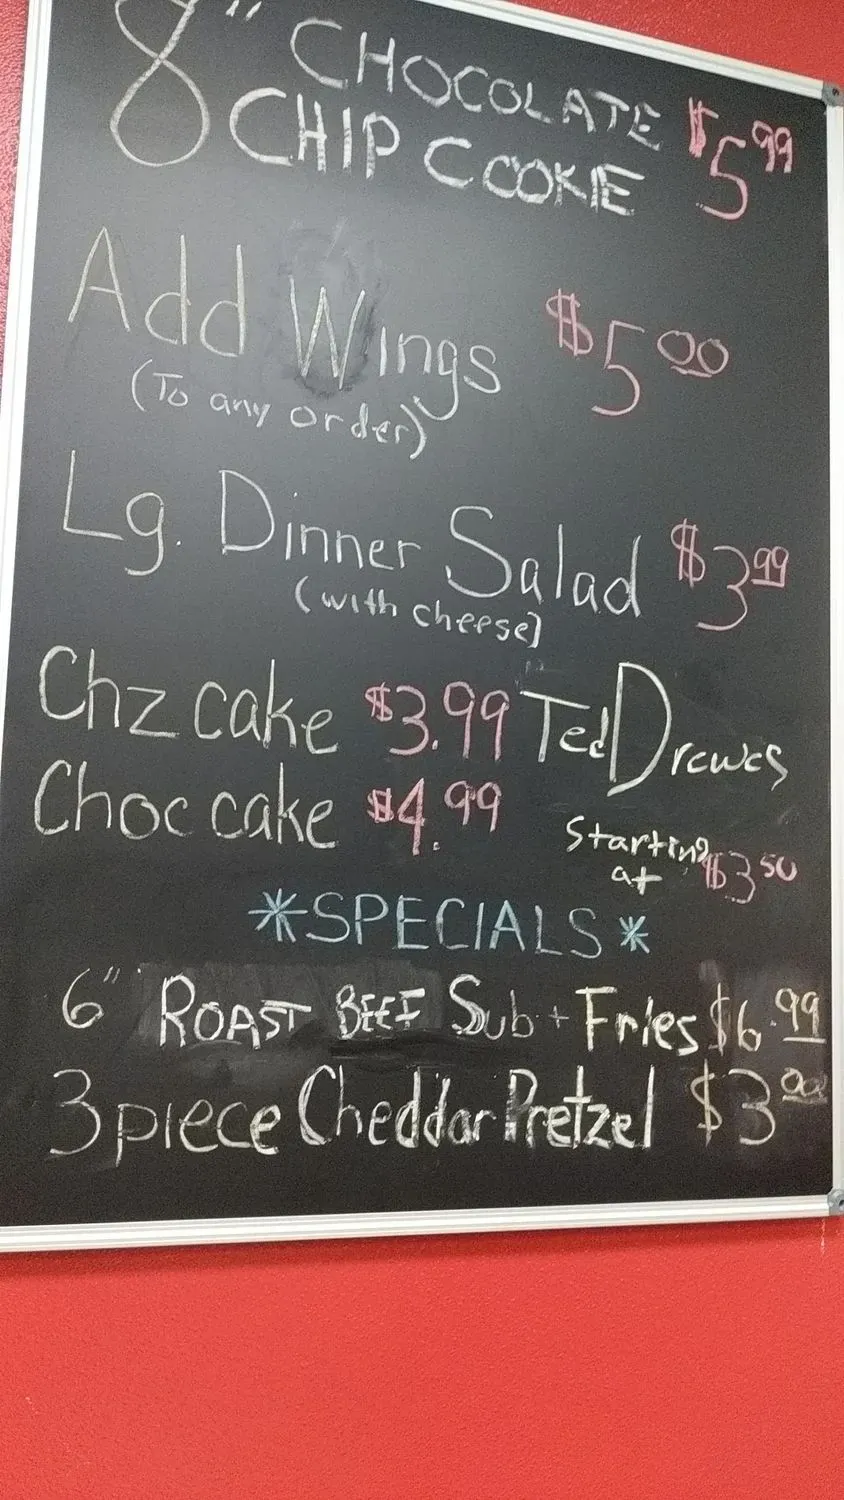 8" CHOCOLATE
CHIP COOKIE $5 99
Add Wings $5 00
(To any order)
Lg. Dinner Salad $3 99
(with cheese)
Chz cake $3.99 Ted Drewes
Choc cake $4.99
Starting
at $3 50
*SPECIALS*
6" ROAST BEEF Sub + Fries $6.99
3 piece Cheddar Pretzel $3 00